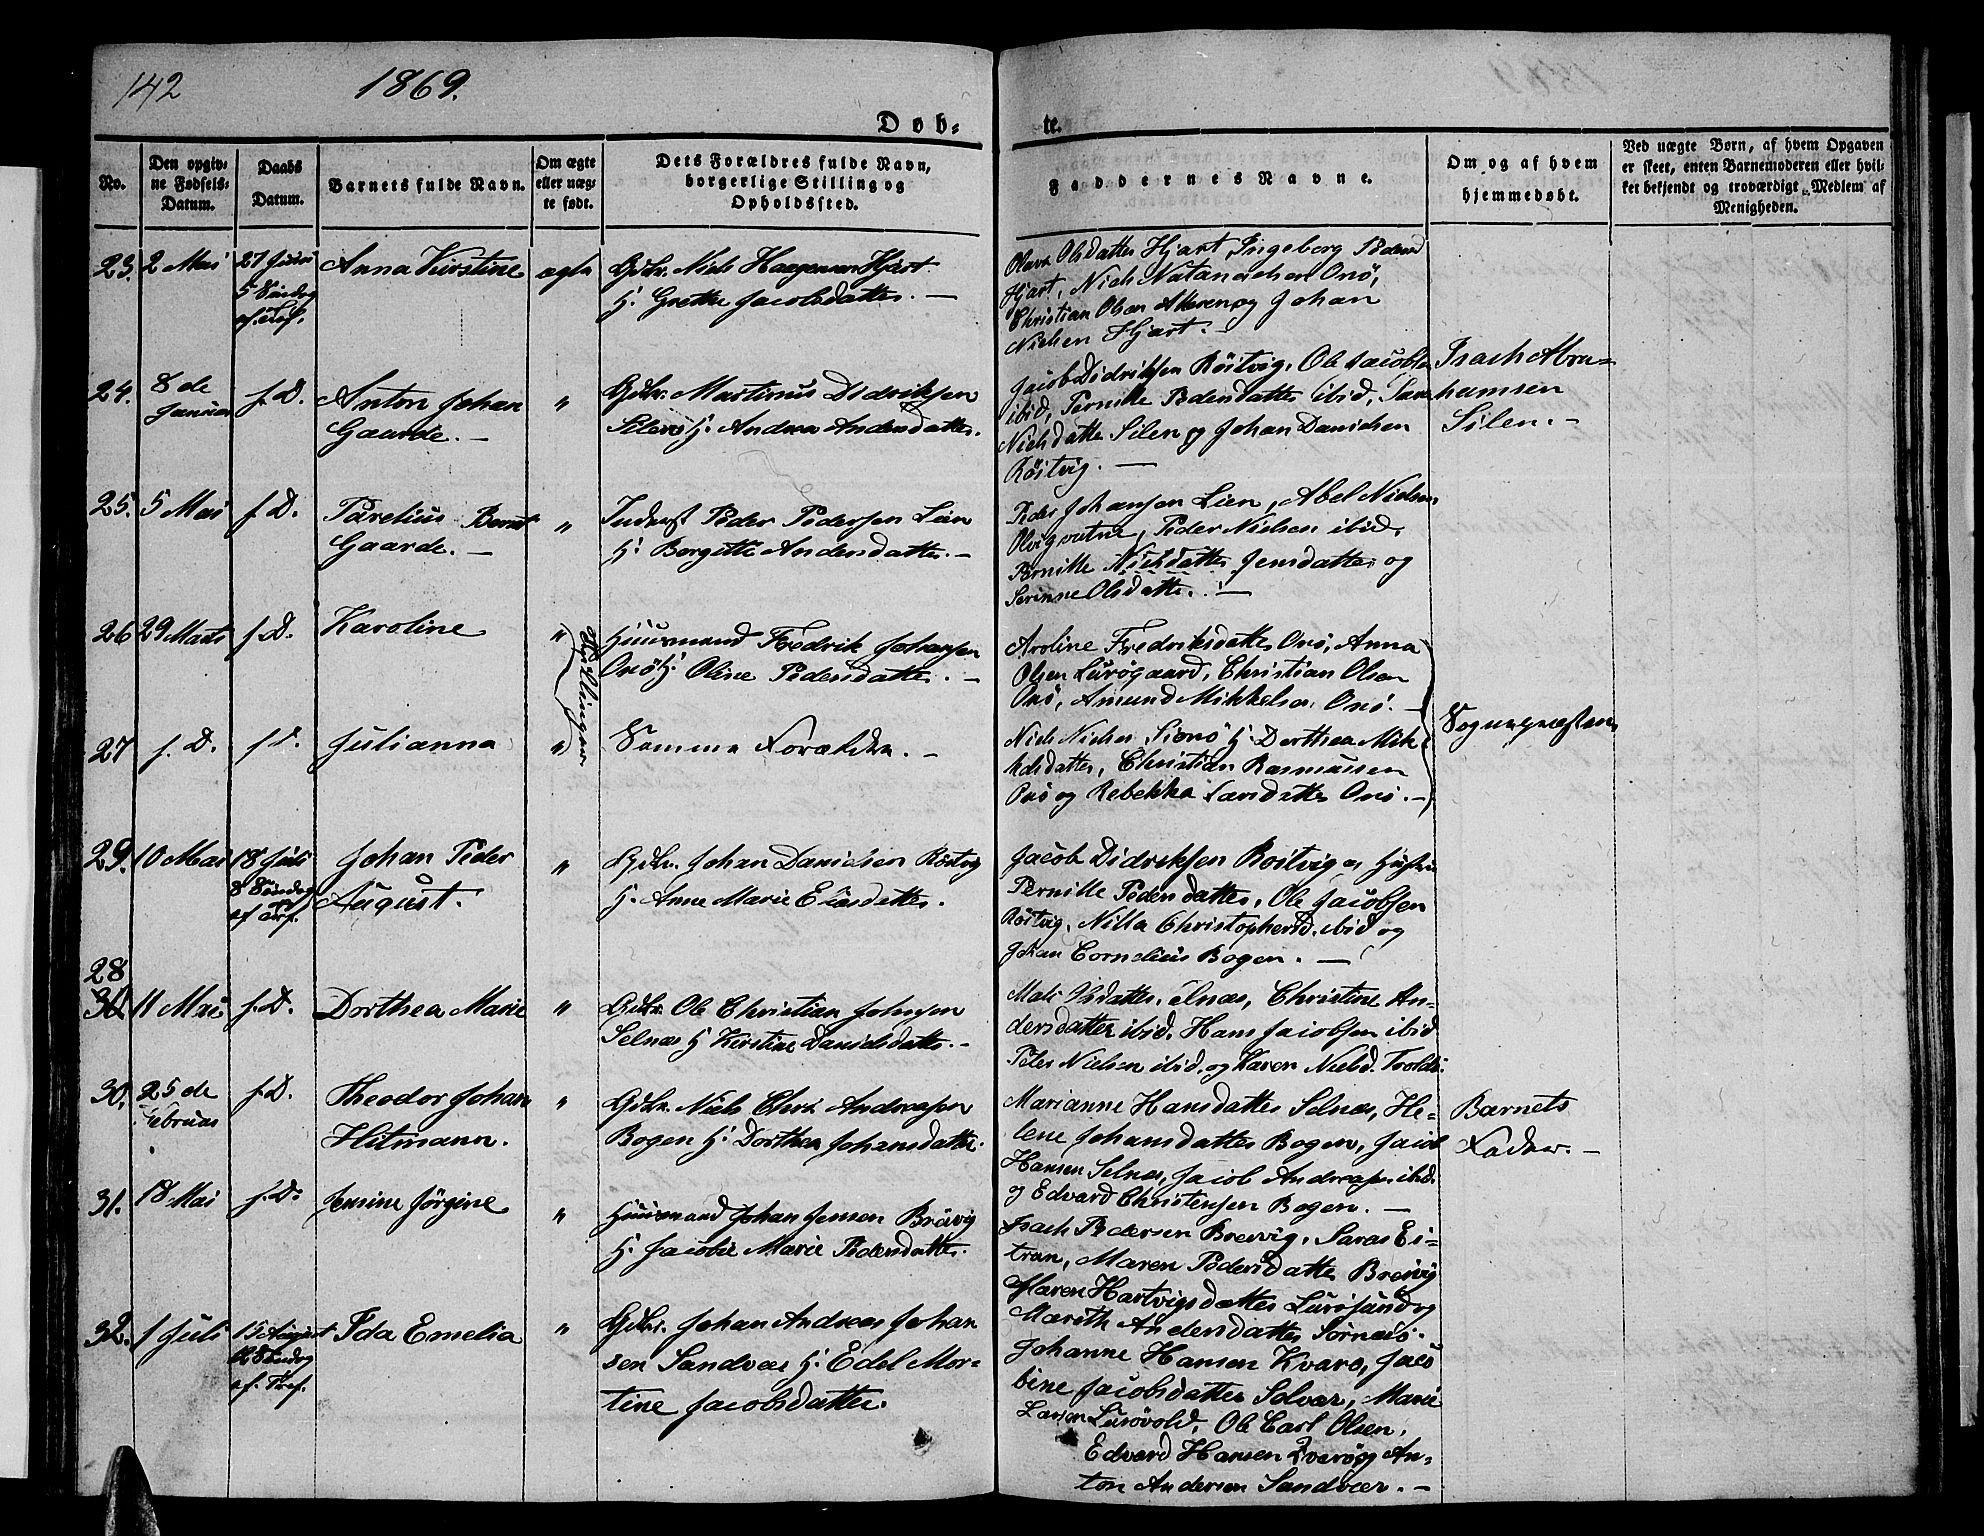 142
1869.
Døb-
te.
No.
Den opgiv-
ne Fødsels-
Datum.
Daabs
Datum.
Barnets fulde Navn.
Om ægte
eller uæg-
te født.
Dets Forældres fulde Navn,
borgerlige Stilling og
Opholdssted.
Faddernes Navne.
Om og af hvem
hjemmedøbt.
Ved uægte Børn, af hvem Opgaven
er skeet, enten Barnemoderen eller hvil-
ket bekjendt og troværdigt Medlem af
Menigheden.
23. 2 Mai 27 Juni
5 Søndag
ef. Tref.
Anna Kirstine
ægte
Gdbr. Niels Haagensen Hjart
H. Grethe Jacobsdatter. —
Olava Olsdatter Hjart, Ingeborg Pedersd
Hjart, Niels Natanielsen Onö,
Christian Olsen og Johan
Nielsen Hjart. —
24. 8 de
Januar
f. D.
Anton Johan
Gaarde. —
"
Gdbr. Martinus Didriksen
Silen H. Andrea Andersdatter.
Jacob Didriksen Röitvig, Ole Jacobsen
ibid, Pernille Pedersdatter ibid, Sara
Nielsdatter Silen og Johan Danielsen
Röitvig. —
Isach Abra-
hamsen
Silen. —
25. 5 Mai f. D.
Parelius Bernt
Gaarde. —
"
Inderst Peder Pedersen Lien
H. Borgitte Andersdatter. —
Peder Johansen Lien, Abel Nielsen
Olvigvatne, Peder Nielsen ibid.
Pernille Nielsdatter Jensdatter og
Serinne Olsdatter. —
26 29 Marts f. D.
Karoline
"
Tvillinger
Huusmand Fredrik Johansen
Onö H. Oline Pedersdatter. —
Aroline Fredriksdatter Onö, Anna
Olsen Luröegaard, Christian Olsen
Onö, Amund Mikkelsen Onö. —
27 f. D. f. D.
Julianna
"
Samme Forældre. —
Niels Nielsen Sionö H. Dorthea Mik-
kelsdatter, Christian Rasmussen
Onö og Rebekka Larsdatter Onö. —
Sognepræsten
29. 10 Mai 18 Juli
8 Søndag
ef. Tref.
Johan Peder
August.
"
Gdbr. Johan Danielsen Röitvig
H. Anne Marie Eliasdatter.
Jacob Didriksen Roitvig og Hustru
Pernille Pedersdatter, Ole Jacobsen
Röitvig, Nilla Christophersd. ibid og
Johan Cornelius Bogen. —
28
30. 11 Mai f. D.
Dorthea Marie
"
Gdbr. Ole Christian Johnsen
Selnæs H. Kirstine Danielsdatter. —
Mali Olsdatter Selnæs, Christine An-
dersdatter ibid. Hans Jacobsen ibid
Peter Nielsen ibid. og Karen Nielsd.
30. 25 de
Februar
f. D.
Theodor Johan
Hitmann.
"
Gdbr. Niels Chr. Andreasen
Bogen H. Dorthea Johansdatter.
Marianne Hansdatter Selnæs, He-
lene Johansdatter Bogen, Jacob
Hansen Selnæs, Jacob Andreasen ibid
og Edvard Christensen Bogen. —
Barnets
Fader. —
31. 18 Mai f. D.
Jensine Jörgine
"
Huusmand Johan Jensen Brevig
H. Jacobie Marie Pedersdatter.
Isach Pedersen Brevig, Saras Ei-
tran, Maren Pedersdatter Brevig
Maren Hartvigsdatter Lurösund og
Marith Andersdatter Sörnæs.
32. 1 Juli 15 August
12 Søndag
ef. Tref.
Ida Emelia
"
Gdbr. Johan Andreas Johan
sen Sandvær H. Edel Mor-
tine Jacobsdatter.
Johanne Hansen Kvarö, Jaco
bine Jacobsdatter Selvær, Marie
Larsen Lurövold, Ole Carl Olsen,
Edvard Hansen Kvarö og An-
ton Andersen Sandvær. —